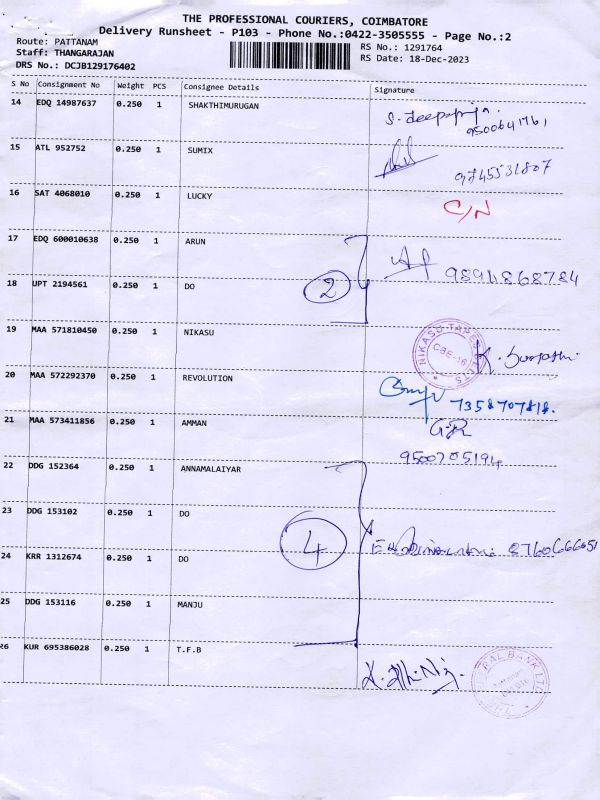 THE PROFESSIONAL COURIERS, COIMBATORE
Delivery Runsheet - P103 - Phone No.:0422-3505555 - Page No.:2
Route: PATTANAM
Staff: THANGARAJAN
DRS No.: DCJB129176402
RS No.: 1291764
RS Date: 18-Dec-2023
S No Consignment No Weight PCS Consignee Details Signature
14 EDQ 14987637 0.250 1 SHAKTHIMURUGAN
9500641761
15 ATL 952752 0.250 1 SUMIX
9745531807
16 SAT 4068010 0.250 1 LUCKY C/N
17 EDQ 600010638 0.250 1 ARUN
9894868784
18 UPT 2194561 0.250 1 DO
2
19 MAA 571810450 0.250 1 NIKASU
NIKASU TAPES
CBE-16
20 MAA 572292370 0.250 1 REVOLUTION
7358707818.
21 MAA 573411856 0.250 1 AMMAN
9500705194
22 DDG 152364 0.250 1 ANNAMALAIYAR
23 DDG 153102 0.250 1 DO
4
24 KRR 1312674 0.250 1 DO
25 DDG 153116 0.250 1 MANJU
26 KUR 695386028 0.250 1 T.F.B